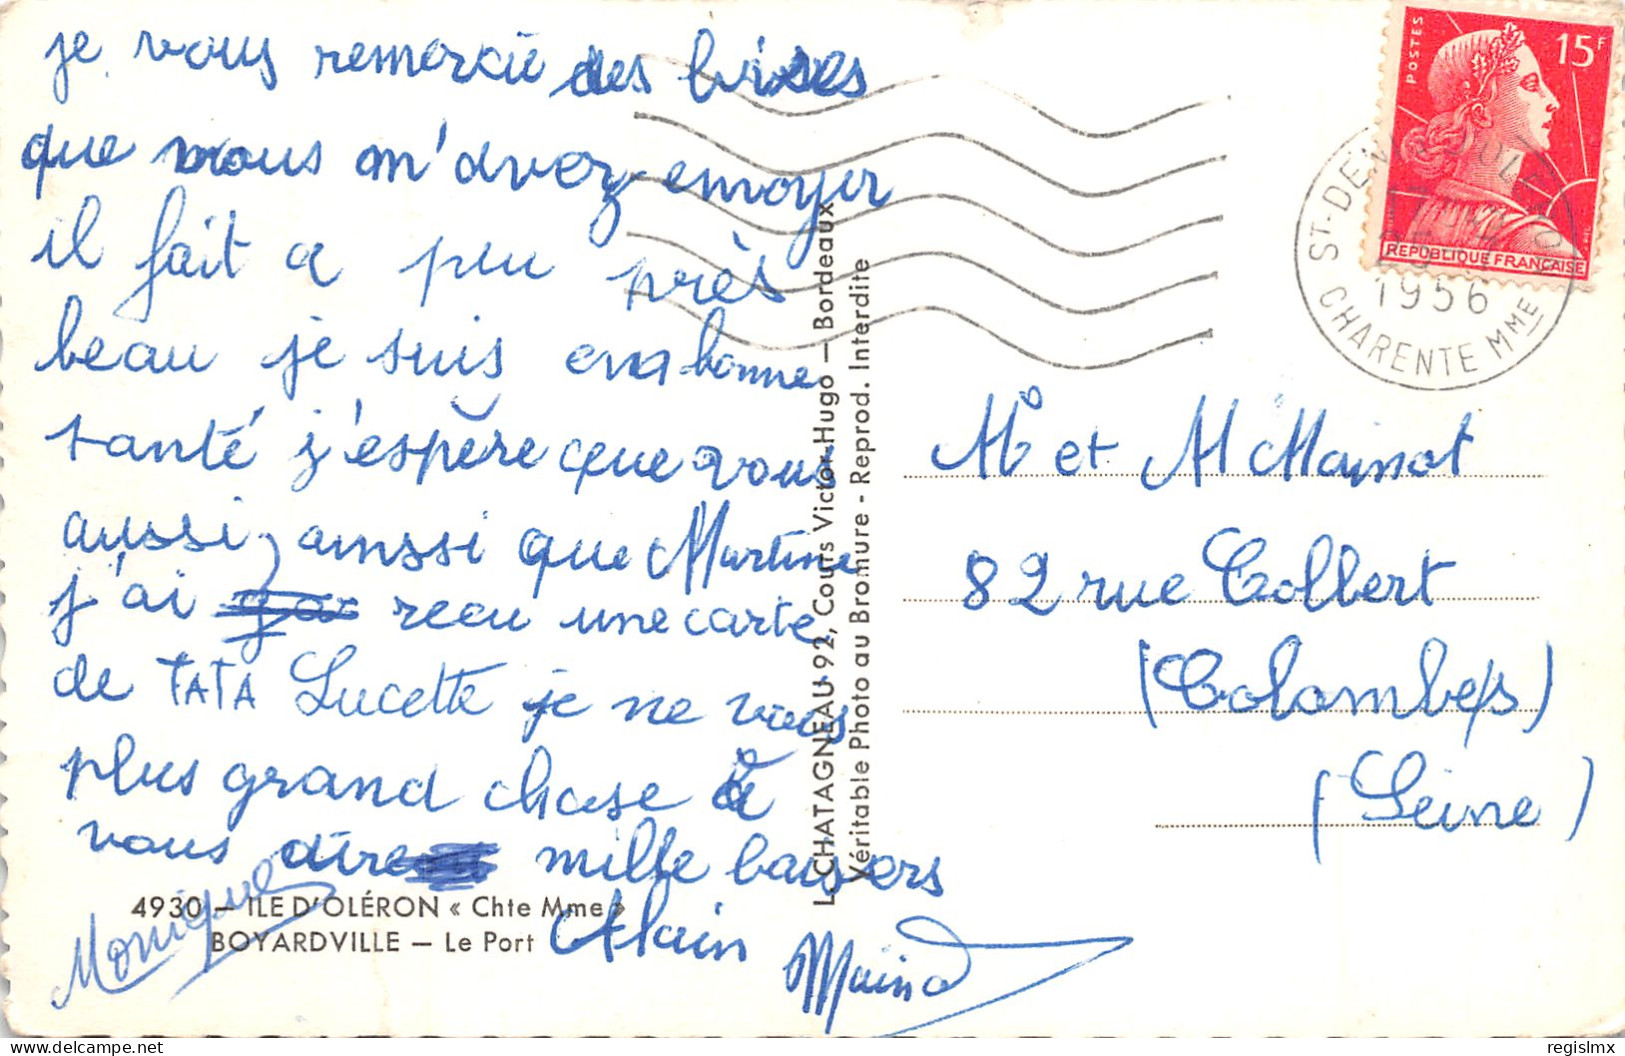 je vous remercie des livres
que vous m'avez emoyer
il fait a peu près
beau je suis en bonne
santé j'espère que vous
aussi, ainssi que Martine
j'ai recu une carte
de TATA Lucette je ne vous
plus grand chose à
vous dire mille baisers
Alain
Monique
Mainot
4930 – ILE D'OLÉRON « Chte Mme »
BOYARDVILLE – Le Port
L. CHATAGNEAU 92, Cours Victor-Hugo – Bordeaux
Véritable Photo au Bromure - Reprod. Interdite
POSTES
15F
REPUBLIQUE FRANÇAISE
ST-DENIS
1956
CHARENTE MME
Mr et M Mainot
82 rue Colbert
(Colombes)
(Seine)
regislmx